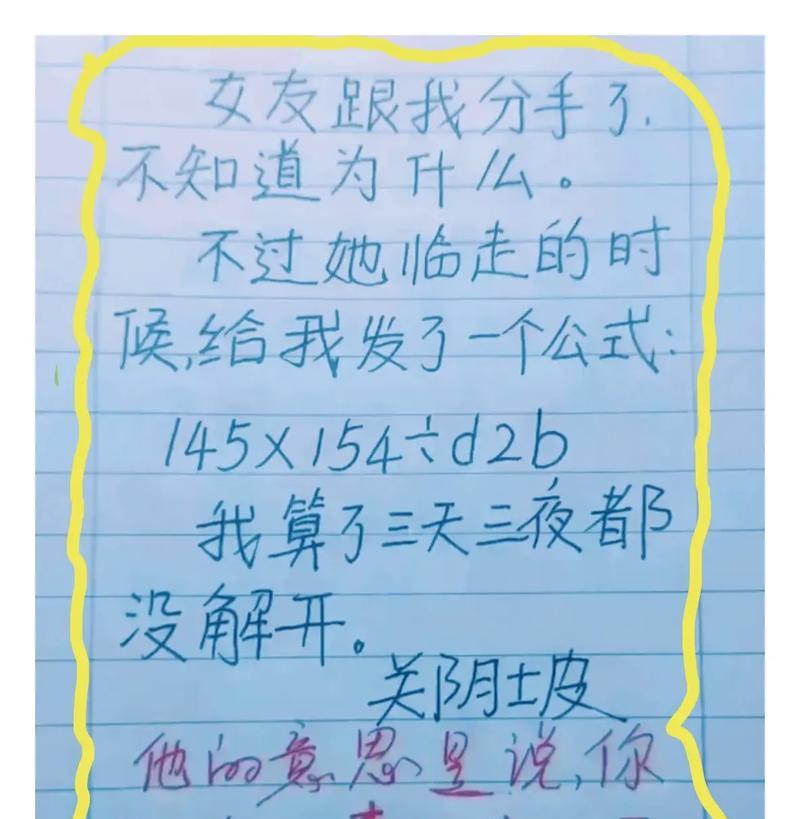 女友跟我分手了.
不知道为什么。
不过她临走的时
候,给我发了一个公式:
145×154÷d2b
我算了三天三夜都
没解开。
他的意思是说,你